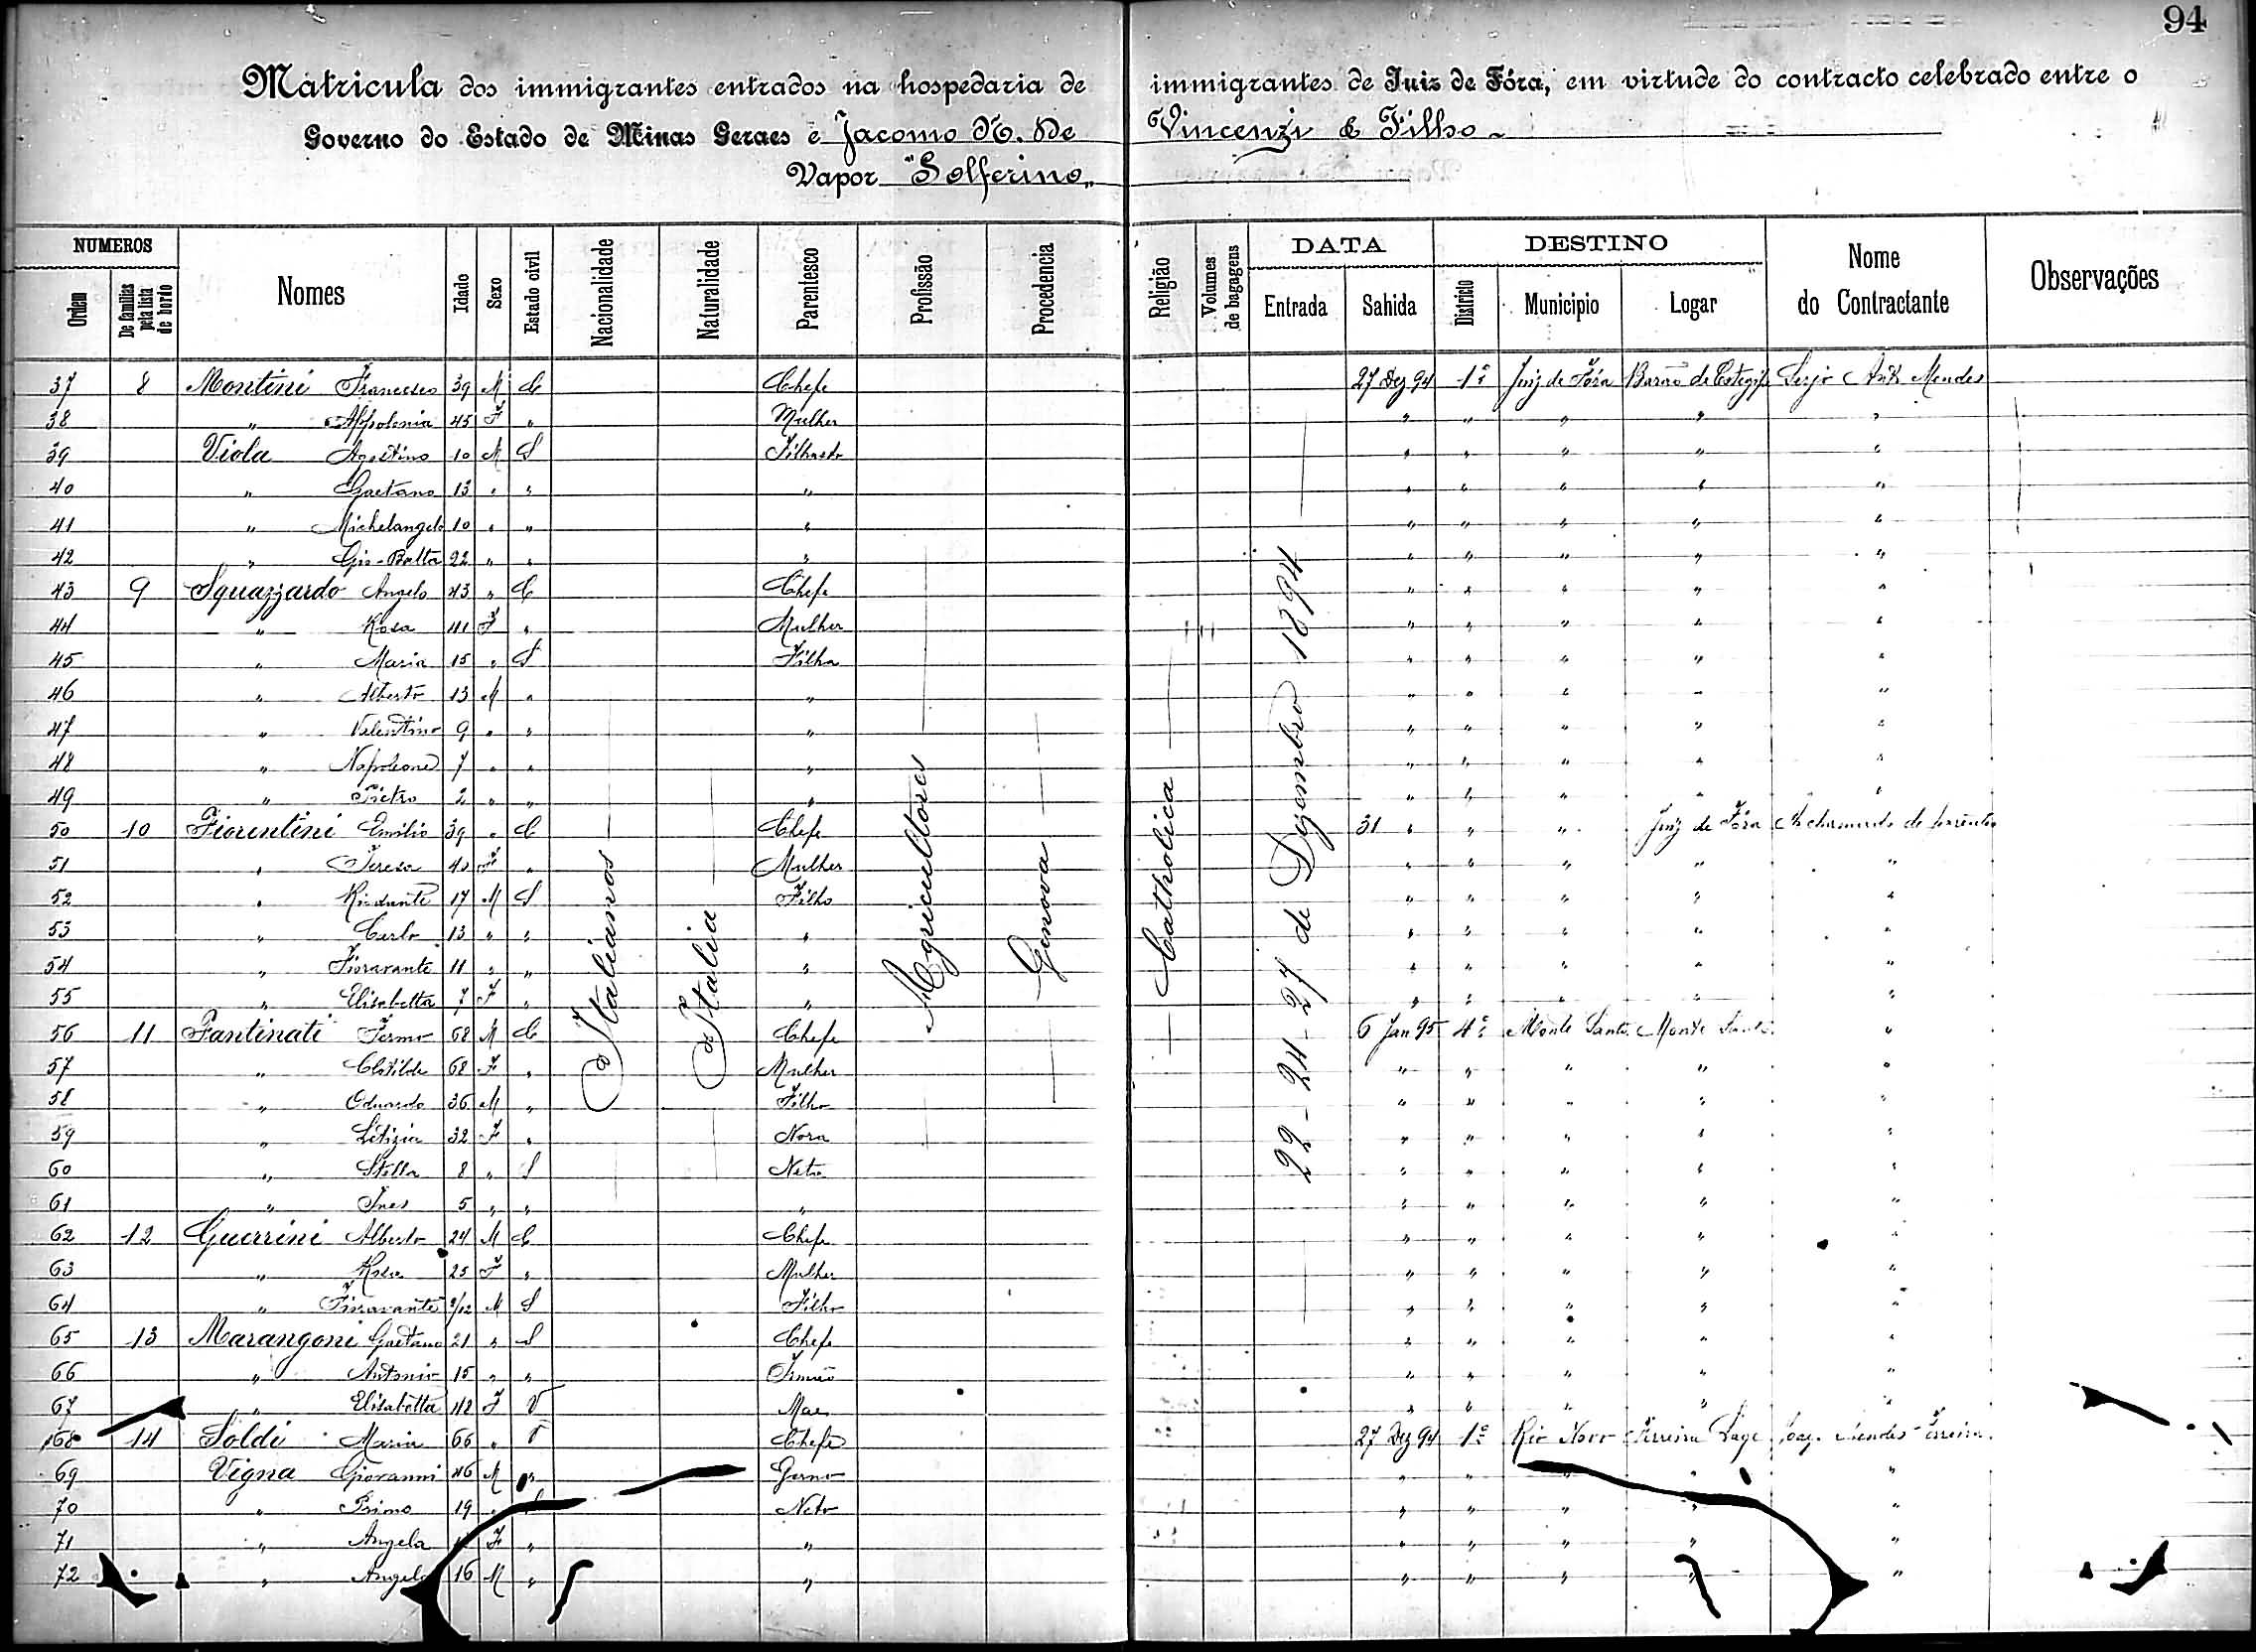 94
Matricula dos immigrantes entrados na hospedaria de immigrantes de Juiz de Fóra, em virtude do contracto celebrado entre o
Governo do Estado de Minas Geraes e Jacomo N. De Vincenzi & Filho
Vapor "Solferino"
NUMEROS DATA DESTINO
Ordem De familias pela lista de bordo Nomes Idade Sexo Estado civil Nacionalidade Naturalidade Parentesco Profissão Procedencia Religião Volumes de bagagens Entrada Sahida Districto Municipio Logar Nome do Contractante Observações
Italianos
Italia
Agricultores
Genova
Catholica
22-24-27 de Dezembro 1894
37 8 Montini Francesco 39 M C Chefe 27 Dez 94 1º Juiz de Fóra Barão de Cotegipe Mendes
38 " Appolonia 45 F " Mulher " " " " "
39 Viola Agostino 10 M S " " " " "
40 " Gaetano 13 " " " " " " " "
41 " Michelangelo 10 " " " " " " " "
42 " Gio-Batta 22 " " " " " " " "
43 9 Squazzardo Angelo 43 " C Chefe " " " " "
44 " Rosa 41 F " Mulher " " " " "
45 " Maria 15 " S Filha " " " " "
46 " Alberto 13 M " " " " " " "
47 " Valentino 9 " " " " " " " "
48 " Napoleone 7 " " " " " " " "
49 " Pietro 2 " " " " " " " "
50 10 Fiorentini Emilio 39 " C Chefe 31 " " " Juiz de Fóra A chamado de parentes
51 " Teresa 40 F " Mulher " " " " "
52 " 17 M S Filho " " " " "
53 " Carlo 13 " " " " " " " "
54 " Fioravante 11 " " " " " " " "
55 " Elisabetta 7 F " " " " " " "
56 11 Fantinati Fermo 68 M C Chefe 6 Jan 95 4º Monte Santo Monte Santo "
57 " Clotilde 68 F " Mulher " " " " "
58 " Eduardo 36 M " Filho " " " " "
59 " Letizia 32 F " Nora " " " " "
60 " Stella 8 " S Neta " " " " "
61 " Ines 5 " " " " " " " "
62 12 Guerrini Alberto 24 M C Chefe " " " " "
63 " Rosa 25 F " Mulher " " " " "
64 " Fioravante M S Filho " " " " "
65 13 Marangoni Gaetano 21 " S Chefe " " " " "
66 " Antonio 15 " " Irmão " " " " "
67 " Elisabetta 42 F V Mae " " " " "
68 14 Soldi Maria 66 " V Chefe 27 Dez 94 1º Rio Novo Ferreira Lage Mendes Ferreira
69 Vigna Giovanni 46 M " Genro " " " " "
70 " Primo 19 " Neto " " " " "
71 " Angela F " " " " " " "
72 " Angelo 16 M " " " " " " "